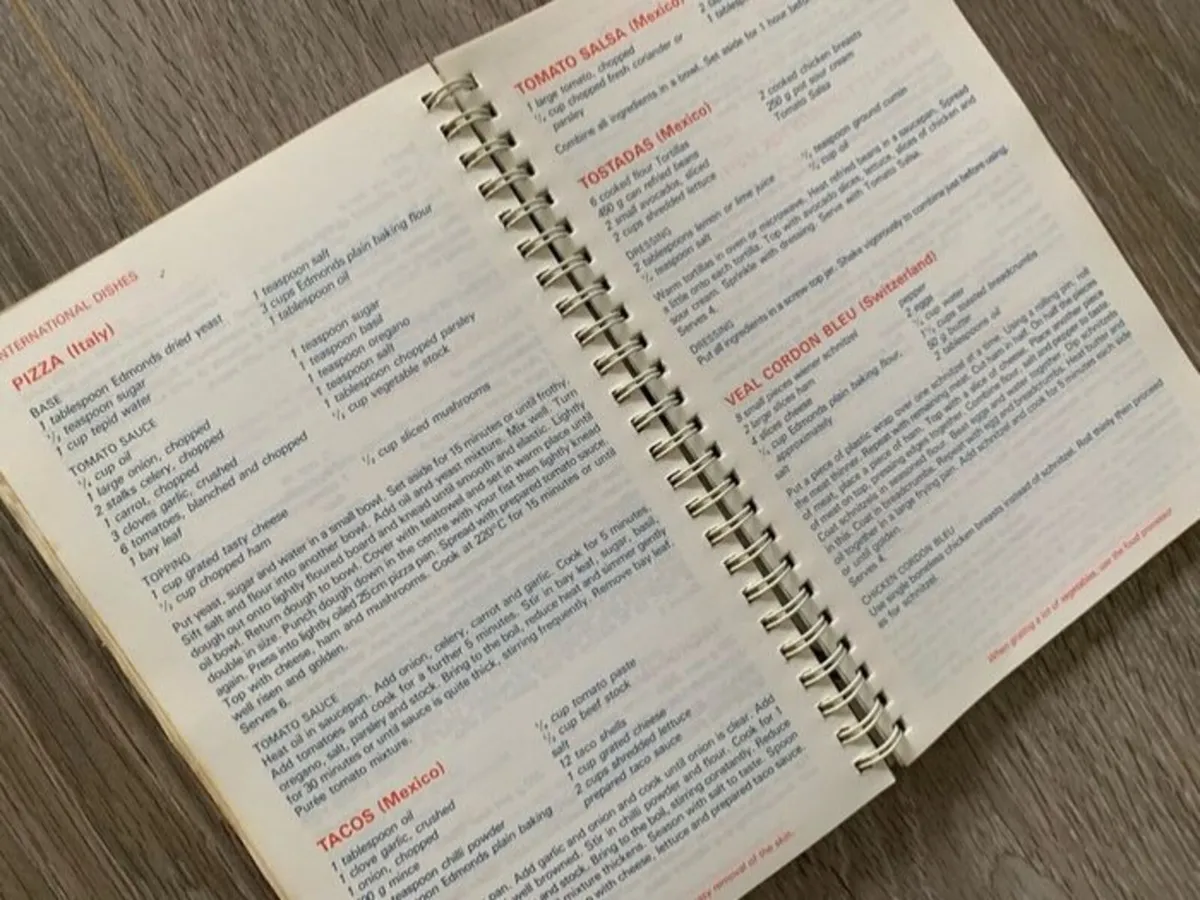 INTERNATIONAL DISHES
PIZZA (Italy)
BASE
1 tablespoon Edmonds dried yeast
teaspoon sugar
1 cup tepid water
1 teaspoon salt
3 cups Edmonds plain baking flour
1 tablespoon oil
TOMATO SAUCE
cup oil
1 large onion, chopped
2 stalks celery, chopped
1 carrot, chopped
3 cloves garlic, crushed
6 tomatoes, blanched and chopped
1 bay leaf
1 teaspoon sugar
1 teaspoon basil
1 teaspoon oregano
1 teaspoon salt
1 tablespoon chopped parsley
cup vegetable stock
TOPPING
1 cup grated tasty cheese
cup chopped ham
cup sliced mushrooms
Put yeast, sugar and water in a small bowl. Set aside for 15 minutes or until frothy.
Sift salt and flour into another bowl. Add oil and yeast mixture. Mix well. Turn
dough out onto lightly floured board and knead until smooth and elastic. Lightly
oil bowl. Return dough to bowl. Cover with teatowel and set in warm place until
double in size. Punch dough down in the centre with your fist then lightly knead
again. Press into lightly oiled 25cm pizza pan. Spread with prepared tomato sauce.
Top with cheese, ham and mushrooms. Cook at 220°C for 15 minutes or until
well risen and golden.
Serves 6.
TOMATO SAUCE
Heat oil in saucepan. Add onion, celery, carrot and garlic. Cook for 5 minutes.
Add tomatoes and cook for a further 5 minutes. Stir in bay leaf, sugar, basil,
oregano, salt, parsley and stock. Bring to the boil, reduce heat and simmer gently
for 30 minutes or until sauce is quite thick, stirring frequently. Remove bay leaf.
Purée tomato mixture.
TACOS (Mexico)
1 tablespoon oil
1 clove garlic, crushed
1 onion, chopped
g mince
teaspoon chilli powder
Edmonds plain baking
cup tomato paste
cup beef stock
salt
12 taco shells
1 cup grated cheese
2 cups shredded lettuce
prepared taco sauce
pan. Add garlic and onion and cook until onion is clear. Add
well browned. Stir in chilli powder and flour. Cook for 1
and stock. Bring to the boil, stirring constantly. Reduce
mixture thickens. Season with salt to taste. Spoon
with cheese, lettuce and prepared taco sauce.
removal of the skin.
TOMATO SALSA (Mexico)
1 large tomato, chopped
cup chopped fresh coriander or
parsley
Combine all ingredients in a bowl. Set aside for 1 hour
TOSTADAS (Mexico)
6 cooked flour Tortillas
450 g can refried beans
2 small avocados, sliced
2 cups shredded lettuce
2 cooked chicken breasts
250 g pot sour cream
Tomato Salsa
DRESSING
2 tablespoons lemon or lime juice
teaspoon salt
teaspoon ground cumin
cup oil
Warm tortillas in oven or microwave. Heat refried beans in a saucepan. Spread
a little onto each tortilla. Top with avocado slices, lettuce, slices of chicken and
sour cream. Sprinkle with dressing. Serve with Tomato Salsa.
Serves 4.
DRESSING
Put all ingredients in a screw top jar. Shake vigorously to combine just before using.
VEAL CORDON BLEU (Switzerland)
8 small pieces wiener schnitzel
2 large slices ham
4 slices cheese
cup Edmonds plain baking flour,
approximately
salt
pepper
2 eggs
cup water
cups toasted breadcrumbs
50 g butter
2 tablespoons oil
Put a piece of plastic wrap over one schnitzel at a time. Using a rolling pin, roll
CHICKEN CORDON BLEU
Use single boneless chicken breasts instead of schnitzel. Roll thinly then proceed
as for schnitzel.
When grating a lot of vegetables, use the food processor